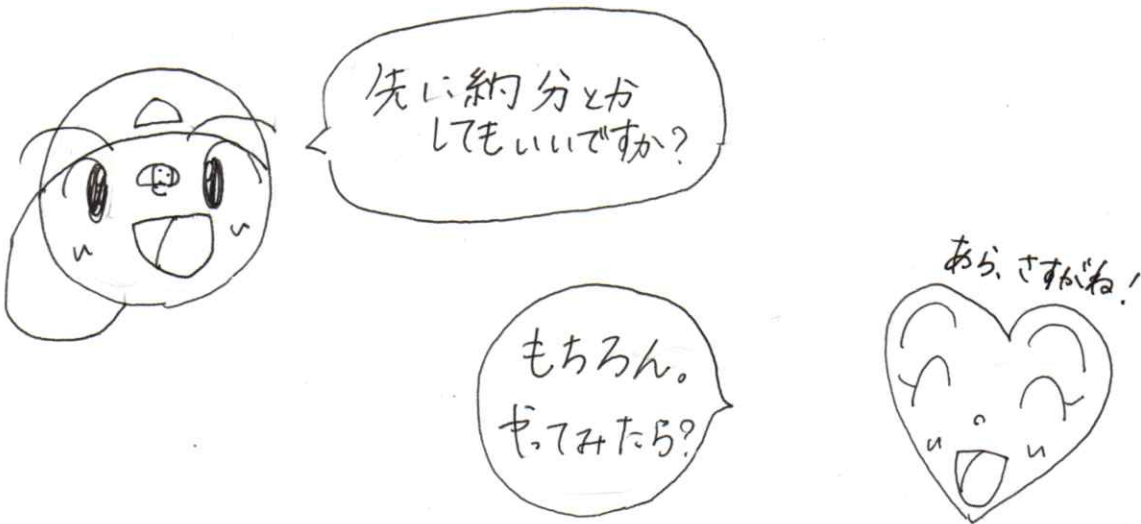 先に約分とか
してもいいですか?
あら、さすがね!
もちろん。
やってみたら?